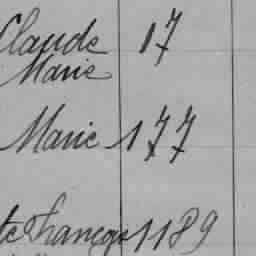 Claude 17
Marie
Marie 177
te françse 1189